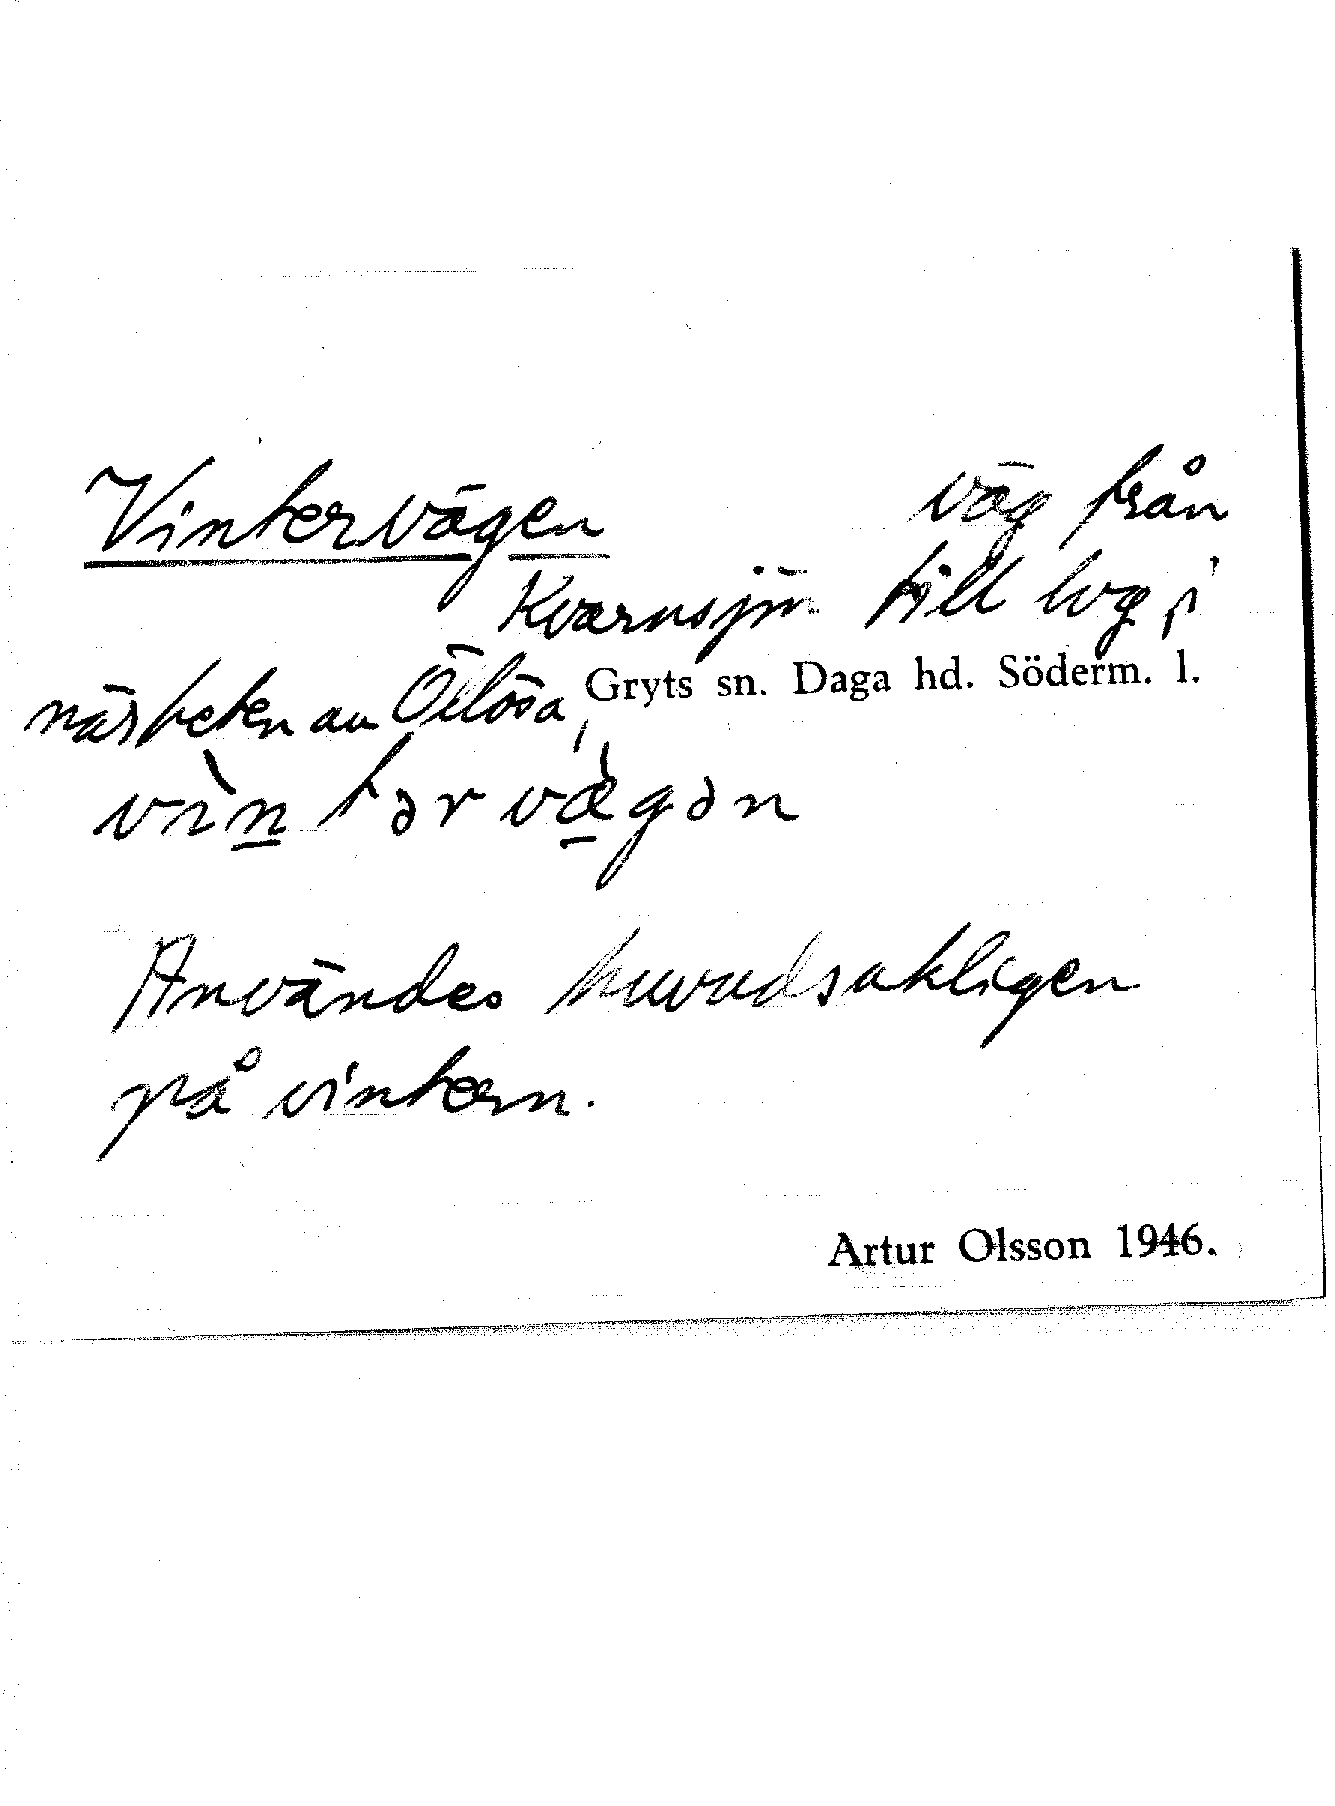 Vintervägen väg från
Kvarnsjön till lvg i
närheten av Öllösa, Gryts sn. Daga hd. Söderm. l.
vìn̲tərvæ̲̀gən
Användes huvudsakligen
på vintern.
Artur Olsson 1946.